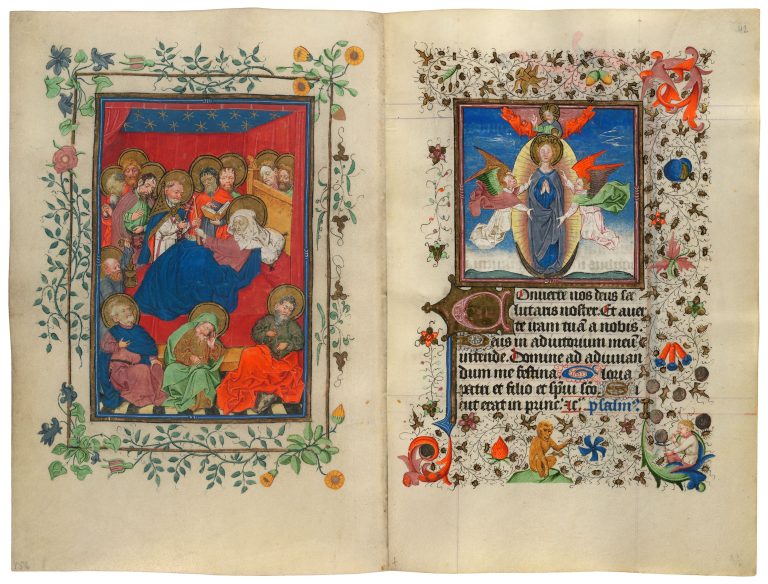 42
Converte nos deus sa
lutaris noster. Et aver
te iram tuā a nobis.
Deus in adiutorium meū
intende. Domine ad adiuuan
dum me festina. Gloria
patri et filio et spūi sco. Si
cut erat in princ.